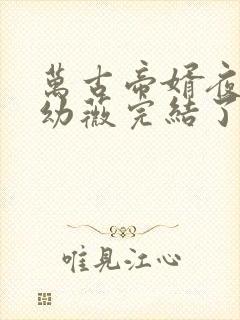 萬古帝婿夜
幼薇完結了
唯見江心